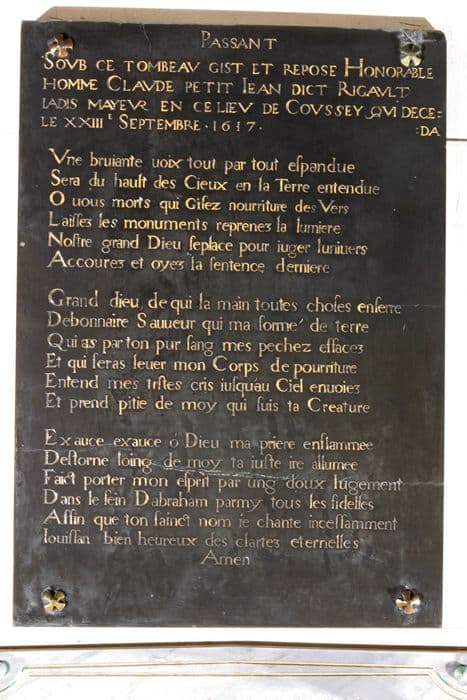 PASSANT
SOVB CE TOMBEAV GIST ET REPOSE HONORABLE
HOMME CLAVDE PETIT IEAN DICT RIGAVLT
IADIS MAYEVR EN CE LIEV DE COVSSEY QVI DECE=
LE XXIII^E SEPTEMBRE · 1617 · =DA
Vne bruiante uoix tout par tout eſpandue
Sera du hault des Cieux en la Terre entendue
O uous morts qui Giſez nourriture des Vers
Laiſſez les monuments reprenez la lumiere
Noſtre grand Dieu ſeplace pour iuger luniuers
Accourez et oyez la ſentence derniere
Grand dieu, de qui la main toutes choſes enſerre
Debonnaire Sauueur qui ma forme´ de terre
Qui as par ton pur ſang mes pechez effacez
Et qui feras leuer mon Corps de pourriture
Entend mes triſtes cris iuſquau Ciel enuoiez
Et prend pitie de moy qui ſuis ta Creature
Exauce exauce ó Dieu ma priere enflammee
Deſtorne loing de moy ta iuſte ire allumee
Faict porter mon eſprit par ung doux Iugement
Dans le ſein Dabraham parmy tous les fidelles
Affin que ton ſainct nom ie chante inceſſamment
Iouiſſan bien heureux des clartez eternelles
Amen